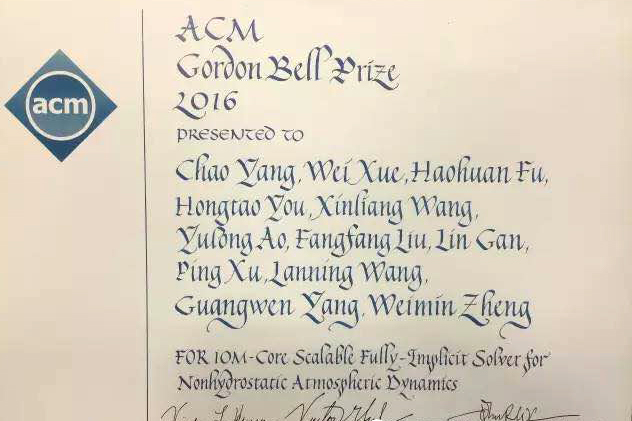 acm
ACM
Gordon Bell Prize
2016
PRESENTED TO
Chao Yang, Wei Xue, Haohuan Fu,
Hongtao You, Xinliang Wang,
Yulong Ao, Fangfang Liu, Lin Gan,
Ping Xu, Lanning Wang,
Guangwen Yang, Weimin Zheng
FOR 10M-Core Scalable Fully-Implicit Solver for
Nonhydrostatic Atmospheric Dynamics